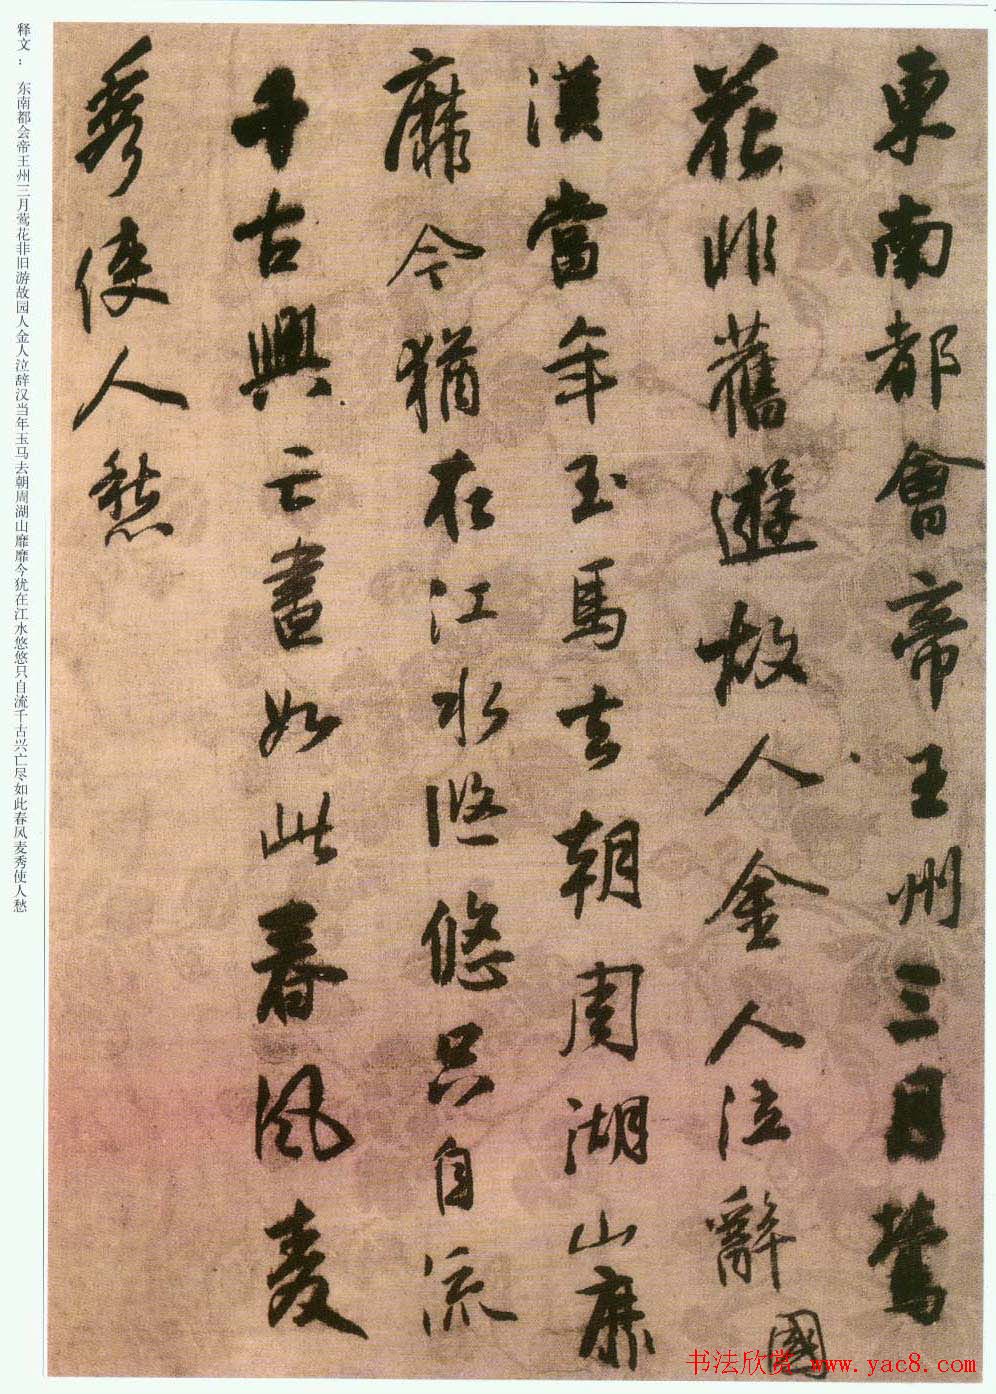 東南都會帝王州三月鶯
花非舊遊故人金人泣辭
國
漢當年玉馬去朝周湖山靡
靡今猶在江水悠悠只自流
千古興亡盡如此春風麥
秀使人愁
释文： 东南都会帝王州三月莺花非旧游故园人金人泣辞汉当年玉马去朝周湖山靡靡今犹在江水悠悠只自流千古兴亡尽如此春风麦秀使人愁
书法欣赏 www.yac8.com